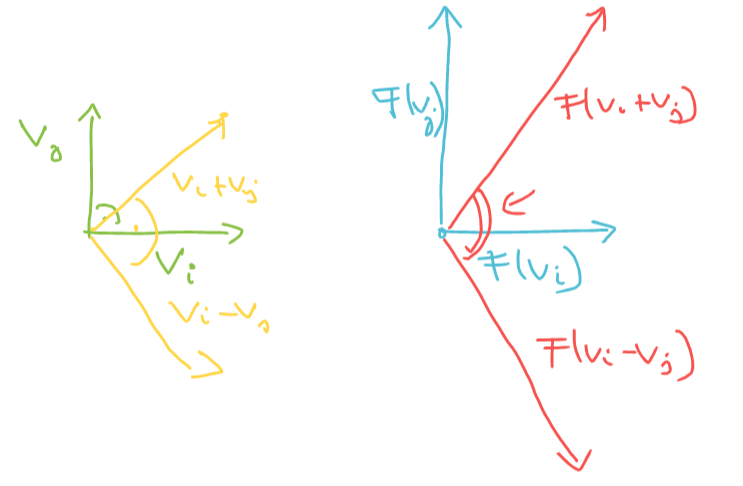 Vj
Vi+Vj
Vi
Vi-Vj
F(Vj)
F(Vi+Vj)
F(Vi)
F(Vi-Vj)